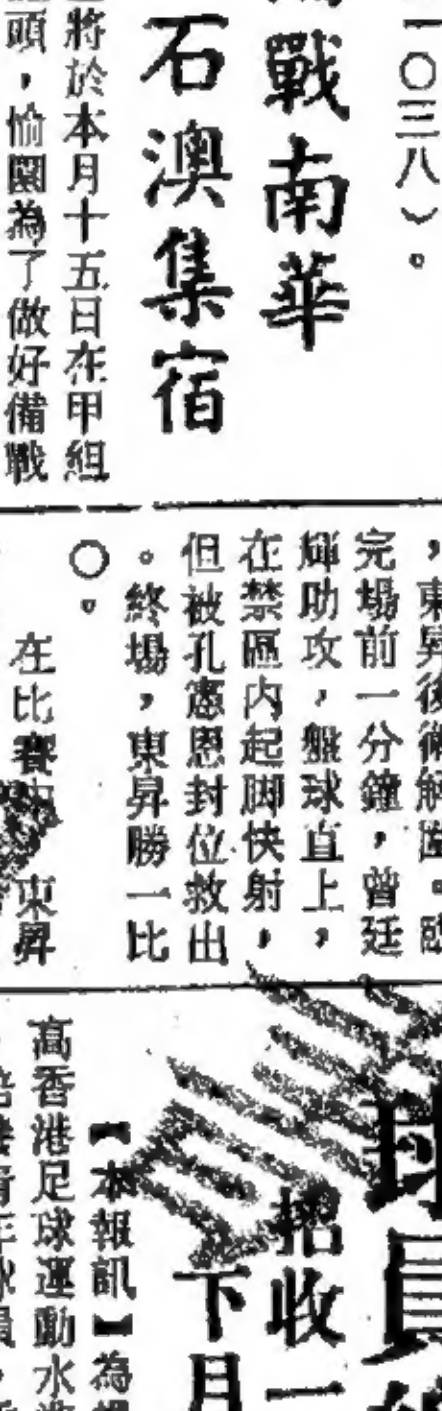 一〇三八）。
戰南華
石澳集宿
將於本月十五日在甲組
頭，愉園為了做好備戰
，東昇後衛解圍。臨
完場前一分鐘，曾廷
輝助攻，盤球直上，
在禁區內起脚快射，
但被孔憲恩封位救出
。終場，東昇勝一比
〇。
在比賽 東昇
球員
招收一
下月
【本報訊】為
高香港足球運動水